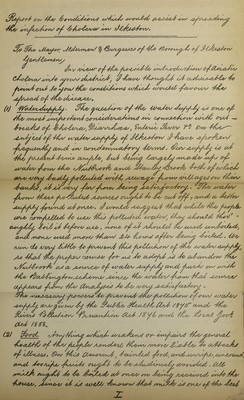 Report on the Conditions which would assist in spreading
the infection of Cholera in Ilkeston.
To The Mayor Aldermen & Burgesses of the Borough of Ilkeston
Gentlemen,
In view of the possible introduction of Asiatic
cholera into your district, I have thought it advisable to
point out to you the conditions which would favour the
spread of the disease.
(1) Water Supply. The question of the Water Supply is one of
the most important considerations in connection with out-
breaks of Cholera, Diarrhoea, Enteric Fever &c. On the
subject of the water supply of Ilkeston I have spoken
frequently and in condemnatory terms. Our supply is at
the present time ample, but being largely made up of
water from the Nutbrook and Stanley Brook both of which
are very badly polluted with sewage from villages on their
banks, it is very far from being satisfactory. The water
from these polluted sources ought to be cut off, and a better
supply found at once. I would suggest that while the people
are compelled to use this polluted water, they should thor-
oughly boil before use, none of it should be used unboiled
and none used more than 24 hours after being boiled. We
can do very little to prevent this pollution of the water supply,
so that the proper course for us to adopt is to abandon the
Nutbrook as a source of water supply and push on with
the scheme, since the water from that source
appears from the Analysis to be very satisfactory.
The necessary powers to prevent the pollution of our water
supply are given by the Public Health Act 1875 and the
Rivers Pollution Prevention Act 1876 and the Local Govt
Act 1888.
(2) Food. Anything which weakens or impairs the general
health of the people renders them more liable to attacks
of illness. On this account, tainted food, and unripe, unsound,
and overripe fruits ought to be studiously avoided. All
milk ought to be boiled at once on being received into the
house, since it is well known that milk is one of the best
I